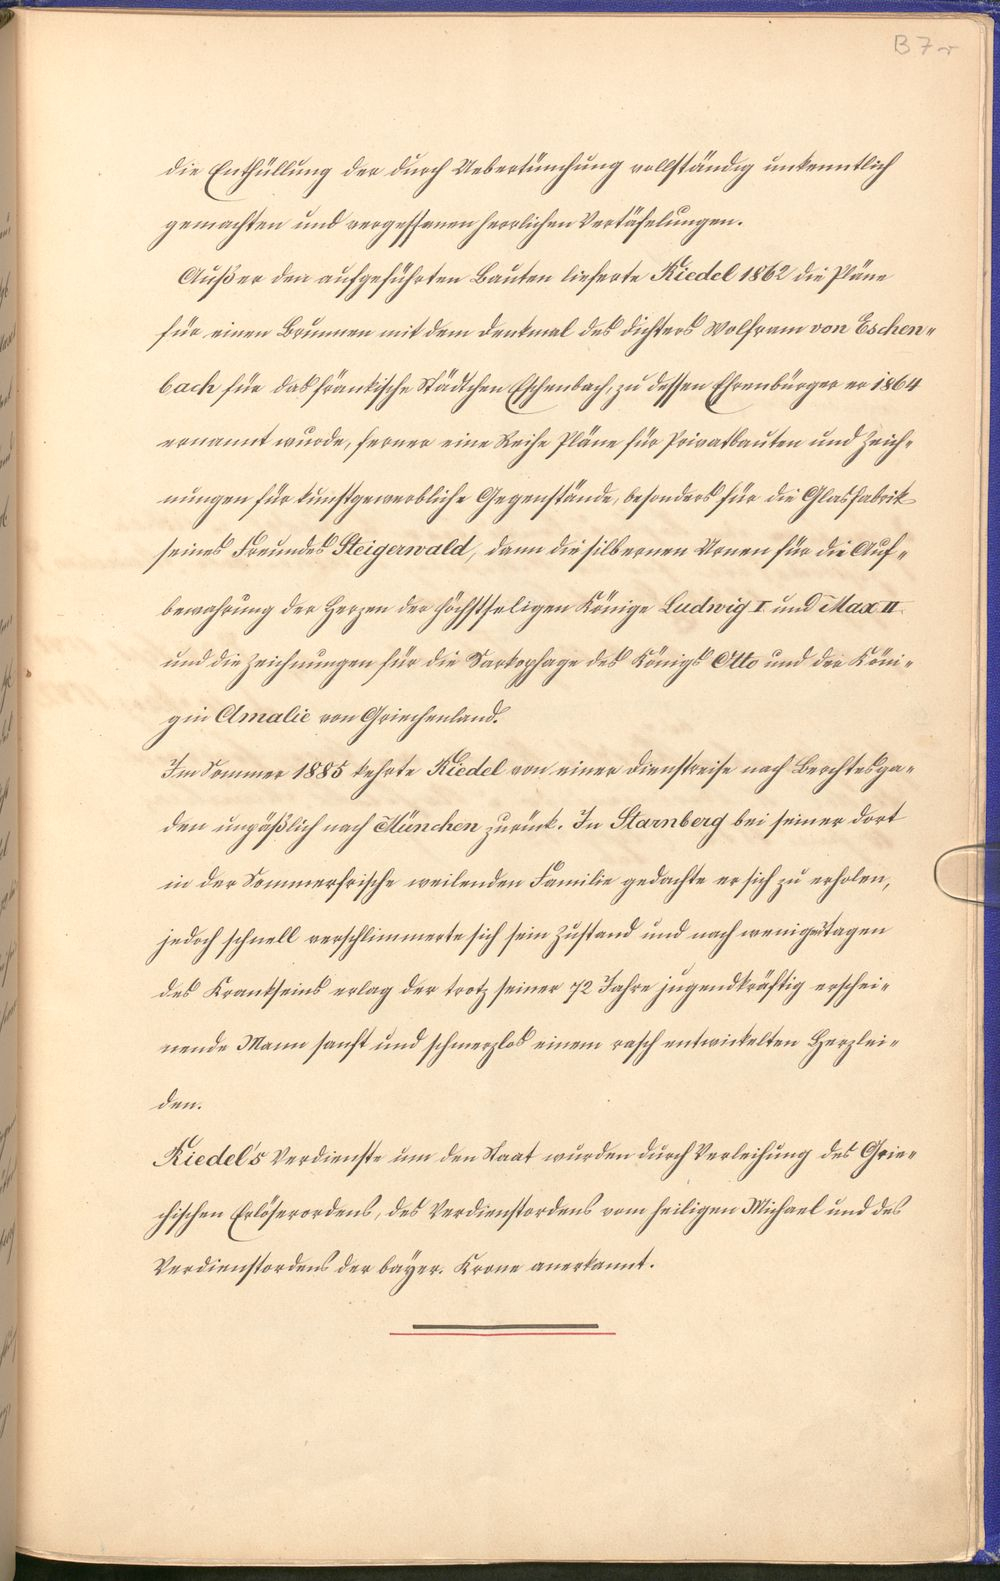 B 7r
die Enthüllung der durch Uebertünchung vollständig unkenntlich
gemachten und vergessenen herrlichen Vertäfelungen.
Außer den aufgeführten Bauten lieferte Riedel 1862 die Pläne
für einen Brunnen mit dem Denkmal des Dichters Wolfram von Eschen-
bach für das fränkische Städtchen Eschenbach, zu dessen Ehrenbürger er 1864
ernannt wurde, ferner eine Reihe Pläne für Privatbauten und Zeich-
nungen für kunstgewerbliche Gegenstände, besonders für die Glasfabrik
seines Freundes Steigerwald, dann die silbernen Urnen für die Auf-
bewahrung der Herzen der höchstseligen Könige Ludwig I und Max II.
und die Zeichnungen für die Sarkophage des Königs Otto und der Köni-
gin Amalie von Griechenland.
Im Sommer 1885 kehrte Riedel von einer Dienstreise nach Berchtesga-
den unpäßlich nach München zurück. In Starnberg bei seiner dort
in der Sommerfrische weilenden Familie gedachte er sich zu erholen,
jedoch schnell verschlimmerte sich sein Zustand und nach wenigen Tagen
des Krankseins erlag der trotz seiner 72 Jahre jugendkräftig erschei-
nende Mann sanft und schmerzlos einem rasch entwickelten Herzlei-
den.
Riedel's Verdienste um den Staat wurden durch Verleihung des Grie-
chischen Erlöserordens, des Verdienstordens vom heiligen Michael und des
Verdienstordens der bayer. Krone anerkannt.